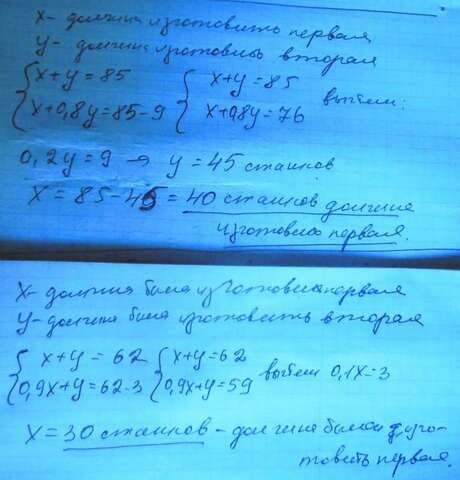 x - должна изготовить первая
y - должна изготовить вторая
{ x+y = 85 { x+y = 85
{ x+0,8y = 85-9 { x+0,8y = 76 вычтем:
0,2y = 9 → y = 45 станков
x = 85-45 = 40 станков должна
изготовить первая.
x - должна была изготовить первая
y - должна была изготовить вторая
{ x+y = 62 { x+y = 62
{ 0,9x+y = 62-3 { 0,9x+y = 59 вычтем 0,1x = 3
x = 30 станков - должна была изго-
товить первая.